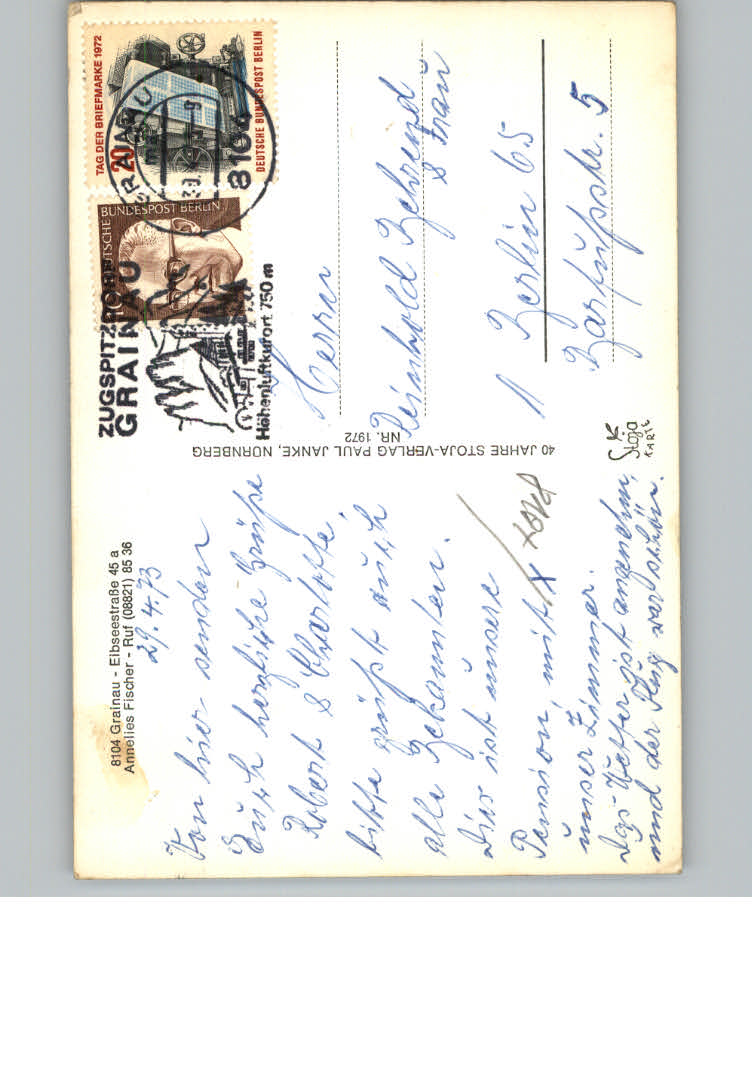 8104 Grainau - Eibseestraße 45 a
Annelies Fischer - Ruf (08821) 85 36
29.4.73
Von hier senden
Euch herzliche Grüße
Robert & Charlotte,
bitte grüßt auch
alle Bekannten.
Dies ist unsere
Pension, mit X
unser Zimmer.
Das Wetter ist angenehm,
und der Flug war schön.
40 JAHRE STOJA-VERLAG PAUL JANKE, NÜRNBERG
NR. 1972
TAG DER BRIEFMARKE 1972
20
DEUTSCHE BUNDESPOST BERLIN
DEUTSCHE BUNDESPOST BERLIN
8104
ZUGSPITZDORF
GRAINAU
Höhenluftkurort 750 m
Herrn
Reinhold Behrend
& Frau
1 Berlin 65
Barfußstr. 5
Stoja
KARTE